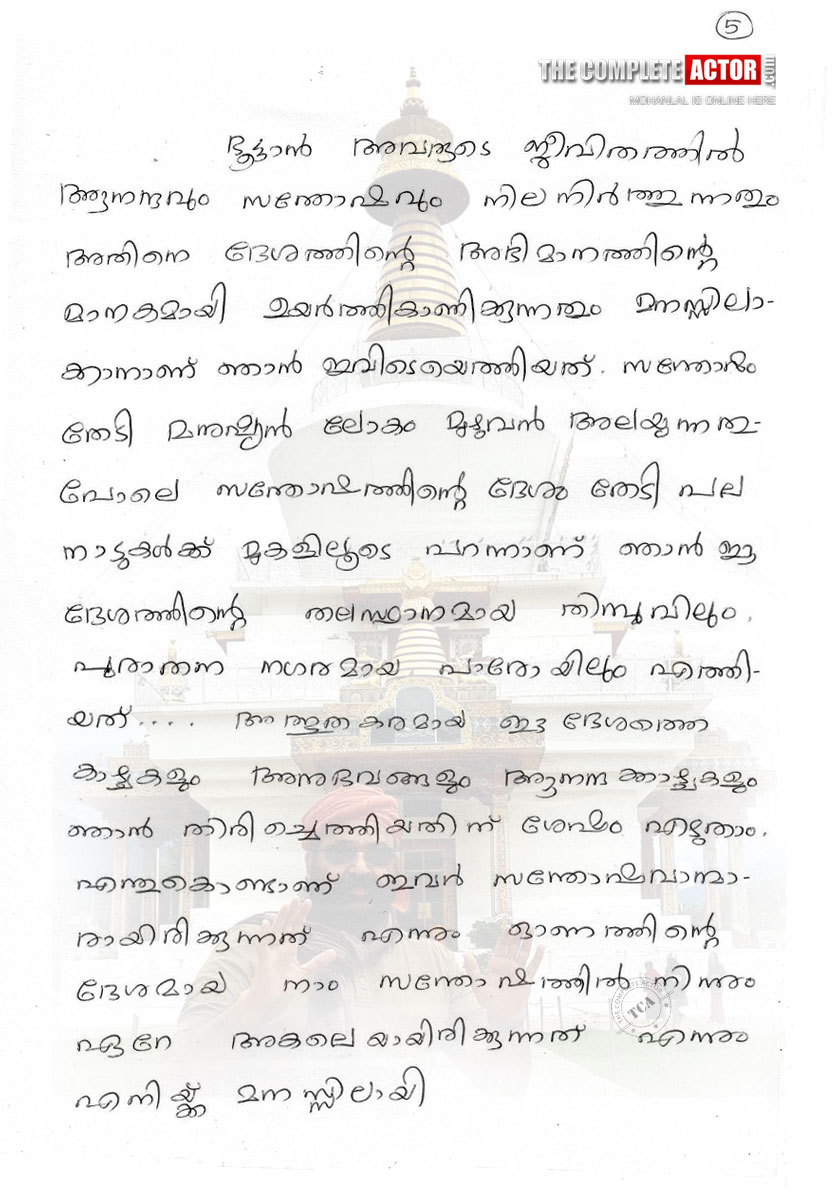 5
THE COMPLETE ACTOR .COM
MOHANLAL IS ONLINE HERE
ഭൂട്ടാൻ അവരുടെ ജീവിതത്തിൽ
ആനന്ദവും സന്തോഷവും നിലനിർത്തുന്നതും
അതിനെ ദേശത്തിന്റെ അഭിമാനത്തിന്റെ
മാനകമായി ഉയർത്തികാണിക്കുന്നതും മനസ്സിലാ-
ക്കാനാണ് ഞാൻ ഇവിടെയെത്തിയത്. സന്തോഷം
തേടി മനുഷ്യൻ ലോകം മുഴുവൻ അലയുന്നതു-
പോലെ സന്തോഷത്തിന്റെ ദേശം തേടി പല
നാട്ടുകൾക്ക് മുകളിലൂടെ പറന്നാണ് ഞാൻ ഈ
ദേശത്തിന്റെ തലസ്ഥാനമായ തിമ്പുവിലും,
പുരാതന നഗരമായ പാരോയിലും എത്തി-
യത്.... അത്ഭുതകരമായ ഈ ദേശത്തെ
കാഴ്ചകളും അനുഭവങ്ങളും ആനന്ദക്കാഴ്ചകളും
ഞാൻ തിരിച്ചെത്തിയതിന് ശേഷം എഴുതാം.
എന്തുകൊണ്ടാണ് ഇവർ സന്തോഷവാന്മാ-
രായിരിക്കുന്നത് എന്നും ഓണത്തിന്റെ
ദേശമായ നാം സന്തോഷത്തിൽ നിന്നും
ഏറേ അകലെയായിരിക്കുന്നത് എന്നും
എനിയ്ക്ക് മനസ്സിലായി
TCA